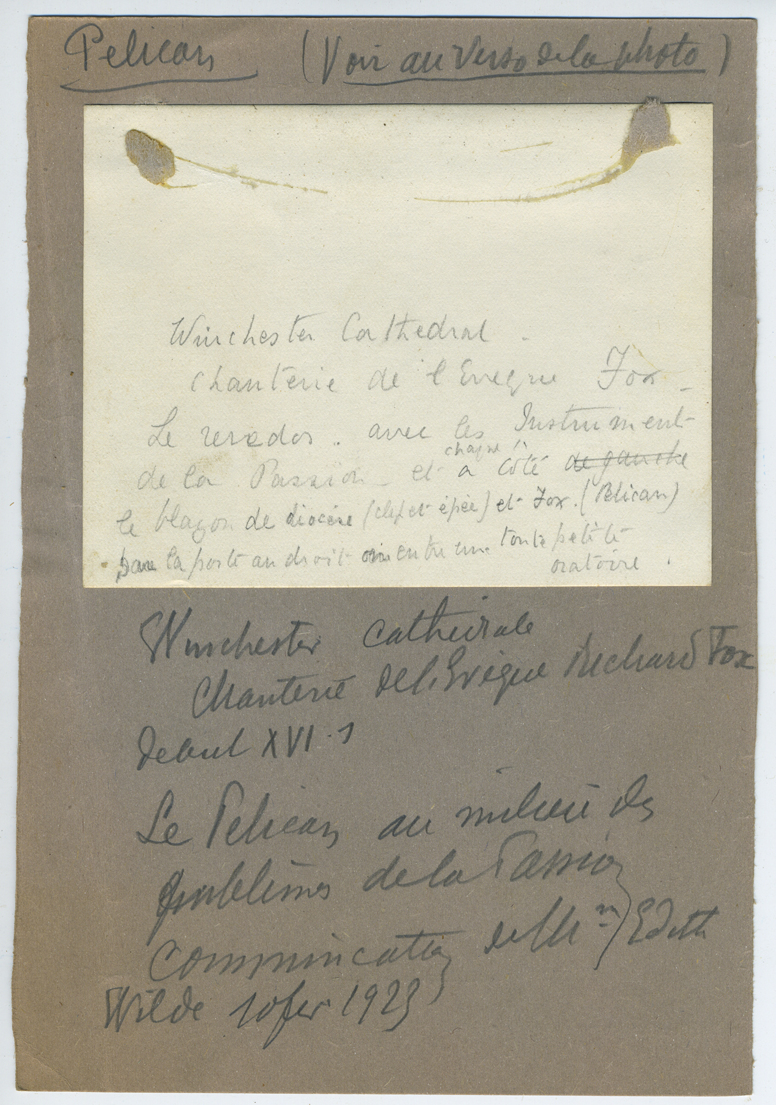 Pelican (Voir au verso de la photo)
Winchester Cathedral.
Chanterie de l'Eveque Fox -
Le reredos. avec les Instrument-
de la Passion - et a chaque côté de gauche
le blason de diocèse (clef et épée) et Fox. (Pélican)
Dans la porte au droit on entre une toute petite
oratoire.
Winchester cathédrale
Chanterie de l'Evêque Richard Fox
Debut XVI. s
Le Pelican au milieu des
emblèmes de la Passion
communication de Edith
Wilde 10 fev 1923